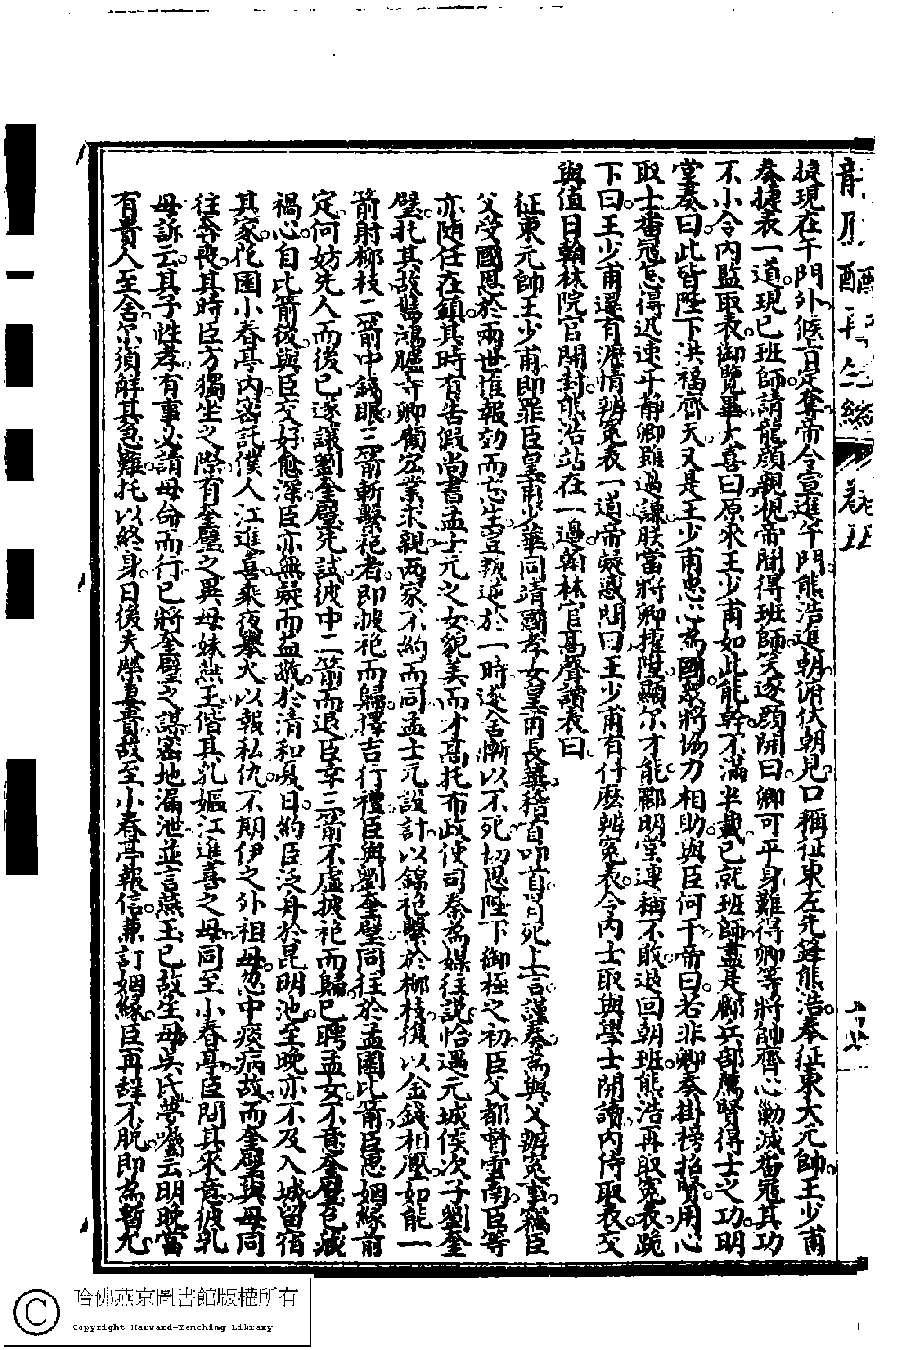 捷現在午門外候旨定奪帝令宣進午門熊浩進朝俯伏朝見口稱征東左先鋒熊浩奉征東大元帥王少甫
奏捷表一道現已班師請龍顏親視帝聞得班師天逐顏開曰卿可平身難得卿等將帥齊心勦滅番冠其功
不小令內監取表御覽畢大喜曰原來王少甫如此能幹不滿半載已就班師盡是酈兵部薦賢得士之功明
堂奏曰此皆陛下洪福齊天又是王少甫忠心為國眾將協力相助與臣何干帝曰若非卿奏掛榜招賢用心
取士番冠怎得迅速平靜卿雖過謙朕當將卿擢陞顯尔才能酈明堂連稱不敢退回朝班熊浩再取冤表跪
下曰王少甫還有瀝情辨冤表一道帝疑惑問曰王少甫有什麽辨冤表令內士取與學士開讀內侍取表交
與值日翰林院官開封熊浩站在一邊翰林官高聲讀表曰
征東元帥王少甫即罪臣皇甫少華同靖國孝女皇甫長華稽首叩首百死上言謹奏為與父辨冤事竊臣
父受國恩於兩世惟報効而忘生豈叛逆於一時遂含慚以不死切思陛下御極之初臣父都督雲南臣等
亦随任在鎮其時有告假尚書孟士元之女貌美而才高托布政使司秦為媒往說恰遇元城侯次子劉奎
璧托其故鴻臚寺卿顧宏業求親兩家不約而同孟士元設計以錦袍繫於柳枝後以金錢相壓如能一
箭射柳枝二箭中錢眼三箭斬繫袍者即披袍而歸擇吉行禮臣與劉奎璧同往於孟園比箭臣思姻緣前
定何妨先人而後已遂讓劉奎璧先試彼中二箭而退臣幸三箭不虛披袍而歸已聘孟女不意奎璧包藏
禍心自比箭後與臣交好愈深臣亦無疑而益敬於清和夏日約臣泛舟於昆明池至晚亦不及入城留宿
其家花園小春亭內密託僕人江進喜乘夜舉火以報私仇不期伊之外祖母忽中痰病故而奎璧與母同
往奔喪其時臣方獨坐之際有奎璧之異母妹燕玉偕其乳嫗江進喜之母同至小春亭臣問其來意彼乳
母訴云其子性孝有事必請母命而行已將奎璧之謀密地漏泄並言燕玉已故生母吳氏夢囑云明晚當
有貴人至舍尔須解其急難托以終身日後夫榮妻貴故至小春亭報信兼訂姻緣臣再辞不脫即為暫允
再生緣
卷五
哈佛燕京圖書館版權所有
Copyright Harvard-Yenching Library